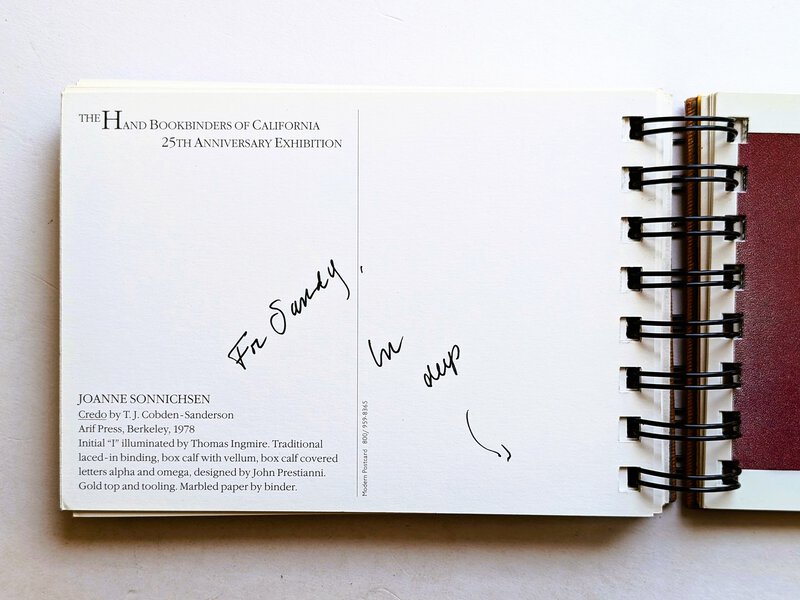 THE HAND BOOKBINDERS OF CALIFORNIA
25TH ANNIVERSARY EXHIBITION
For Sandy,
In
deep
JOANNE SONNICHSEN
Credo by T. J. Cobden-Sanderson
Arif Press, Berkeley, 1978
Initial “I” illuminated by Thomas Ingmire. Traditional
laced-in binding, box calf with vellum, box calf covered
letters alpha and omega, designed by John Prestianni.
Gold top and tooling. Marbled paper by binder.
Modern Postcard 800/ 959-8365